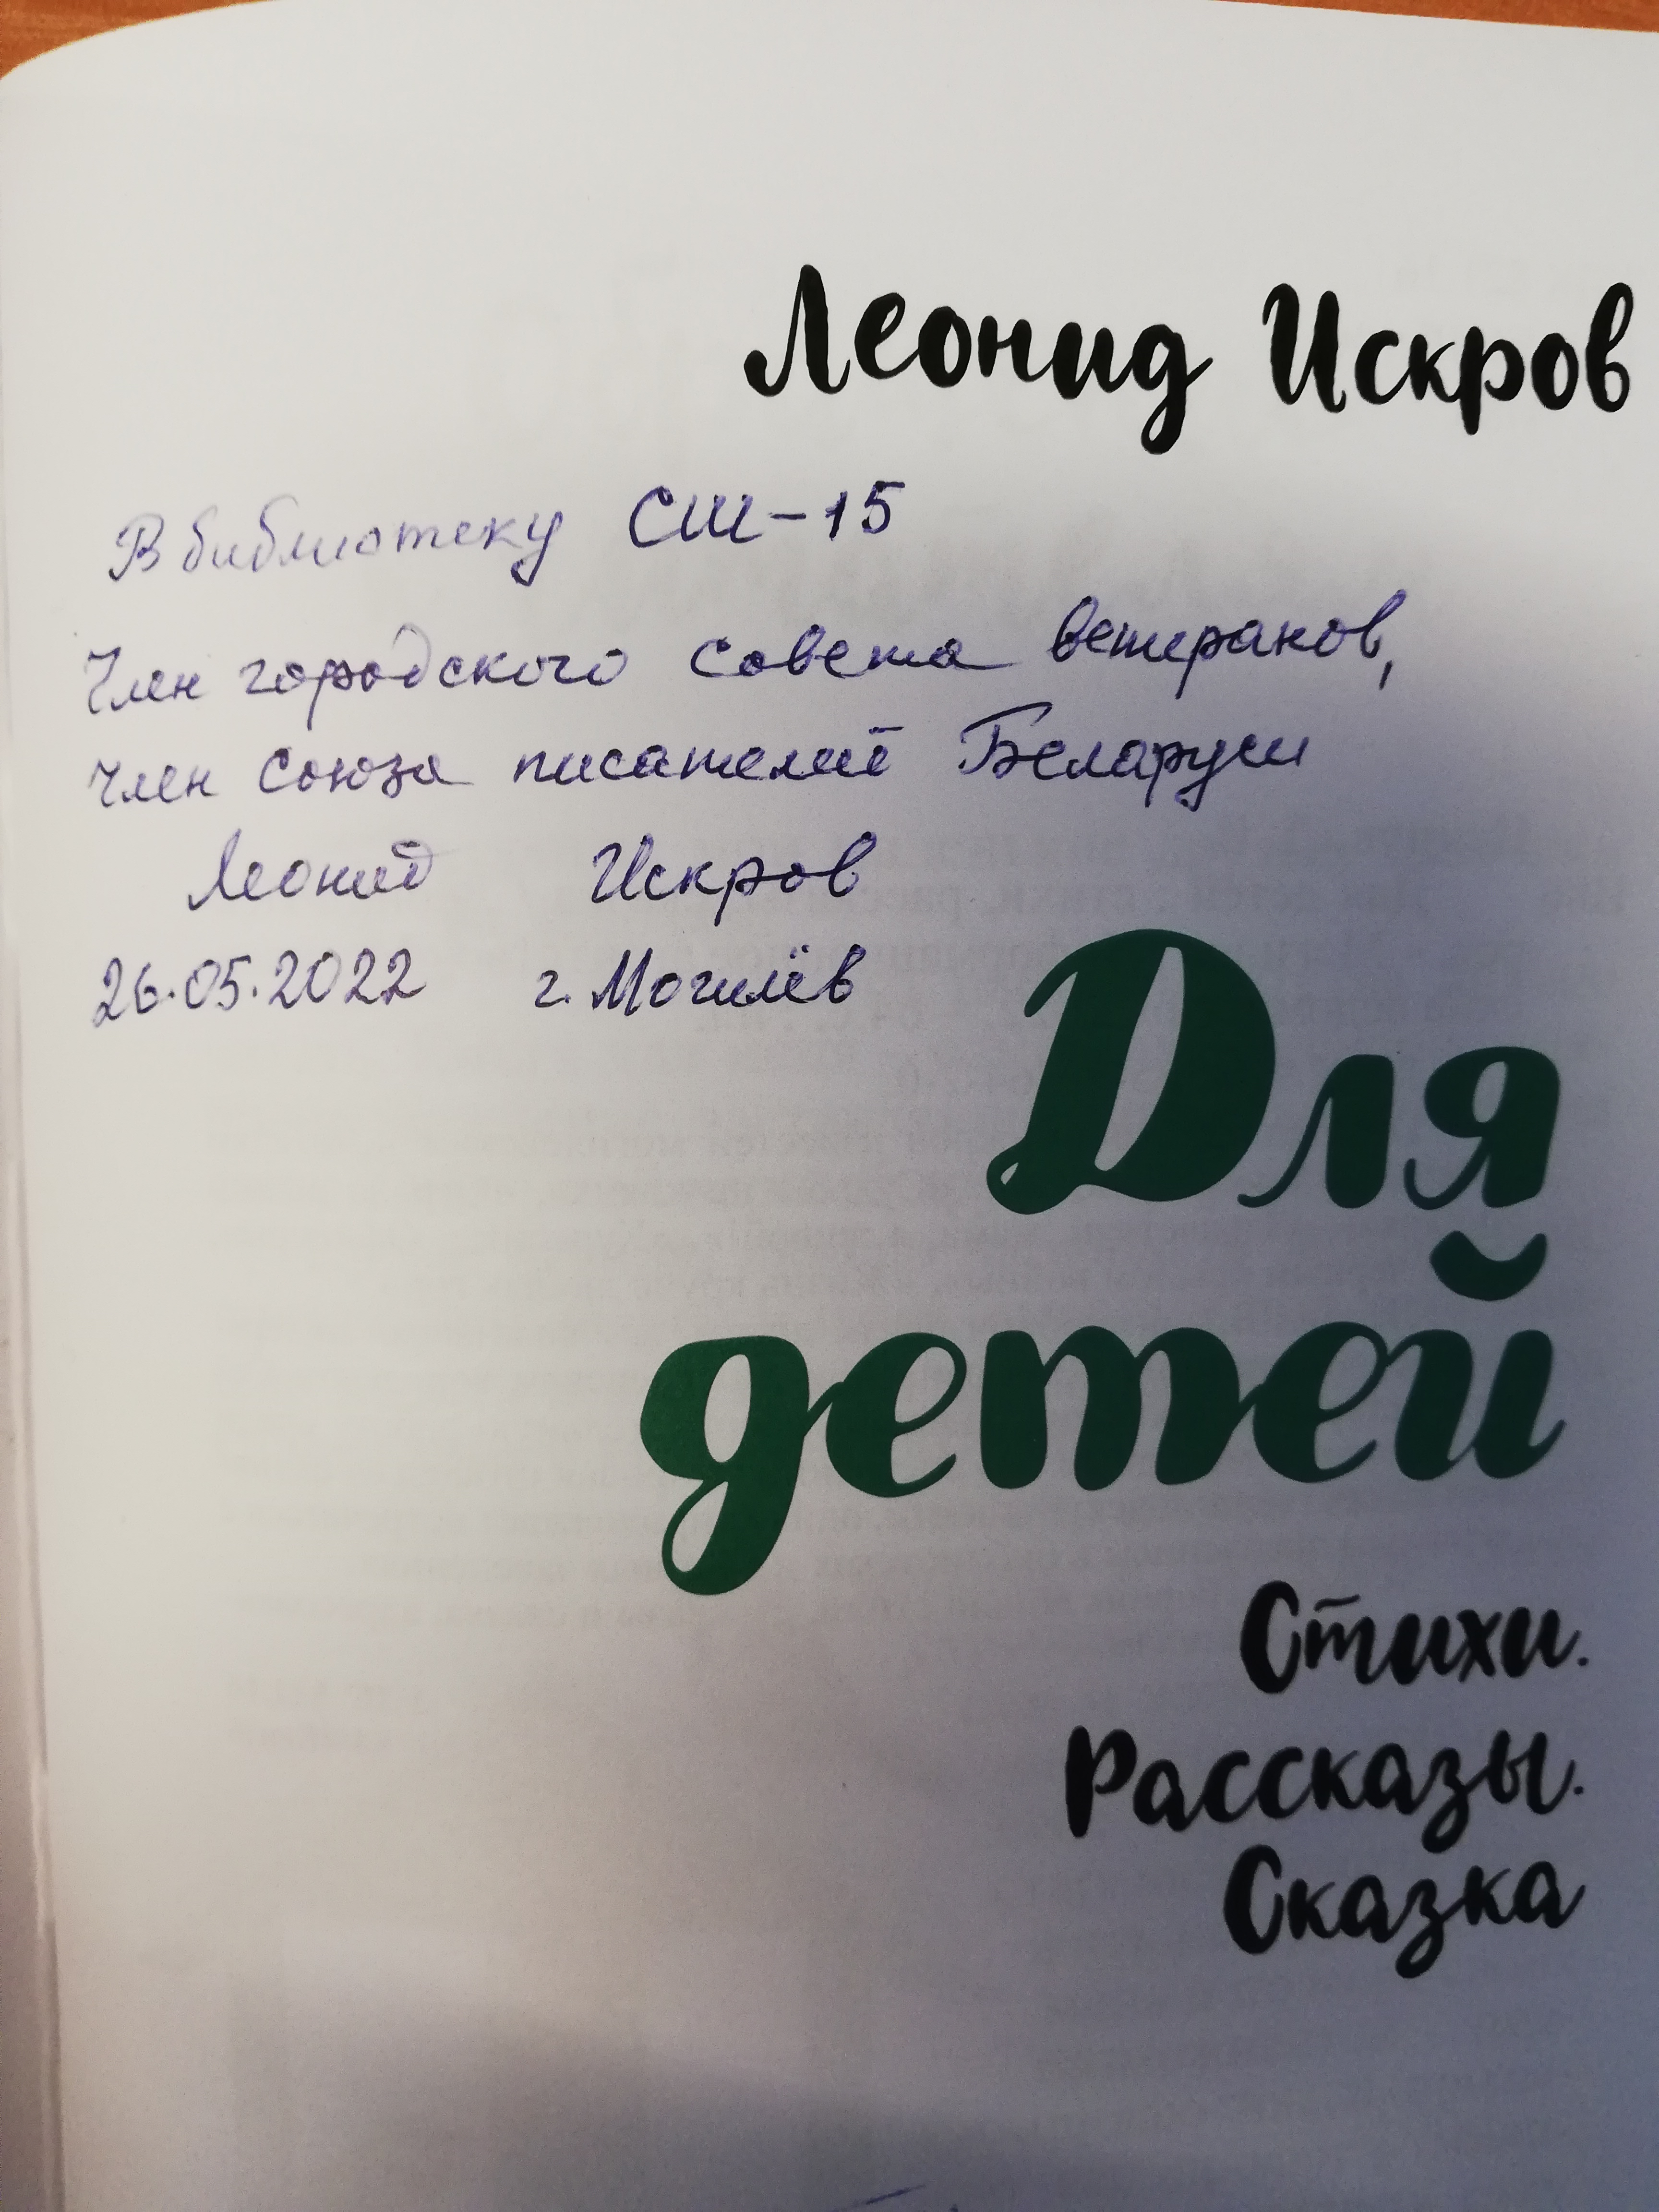 Леонид Искров
В библиотеку СШ-15
Член городского совета ветеранов,
член союза писателей Беларуси
Леонид Искров
26.05.2022 г. Могилёв
Для
детей
Стихи.
Рассказы.
Сказка